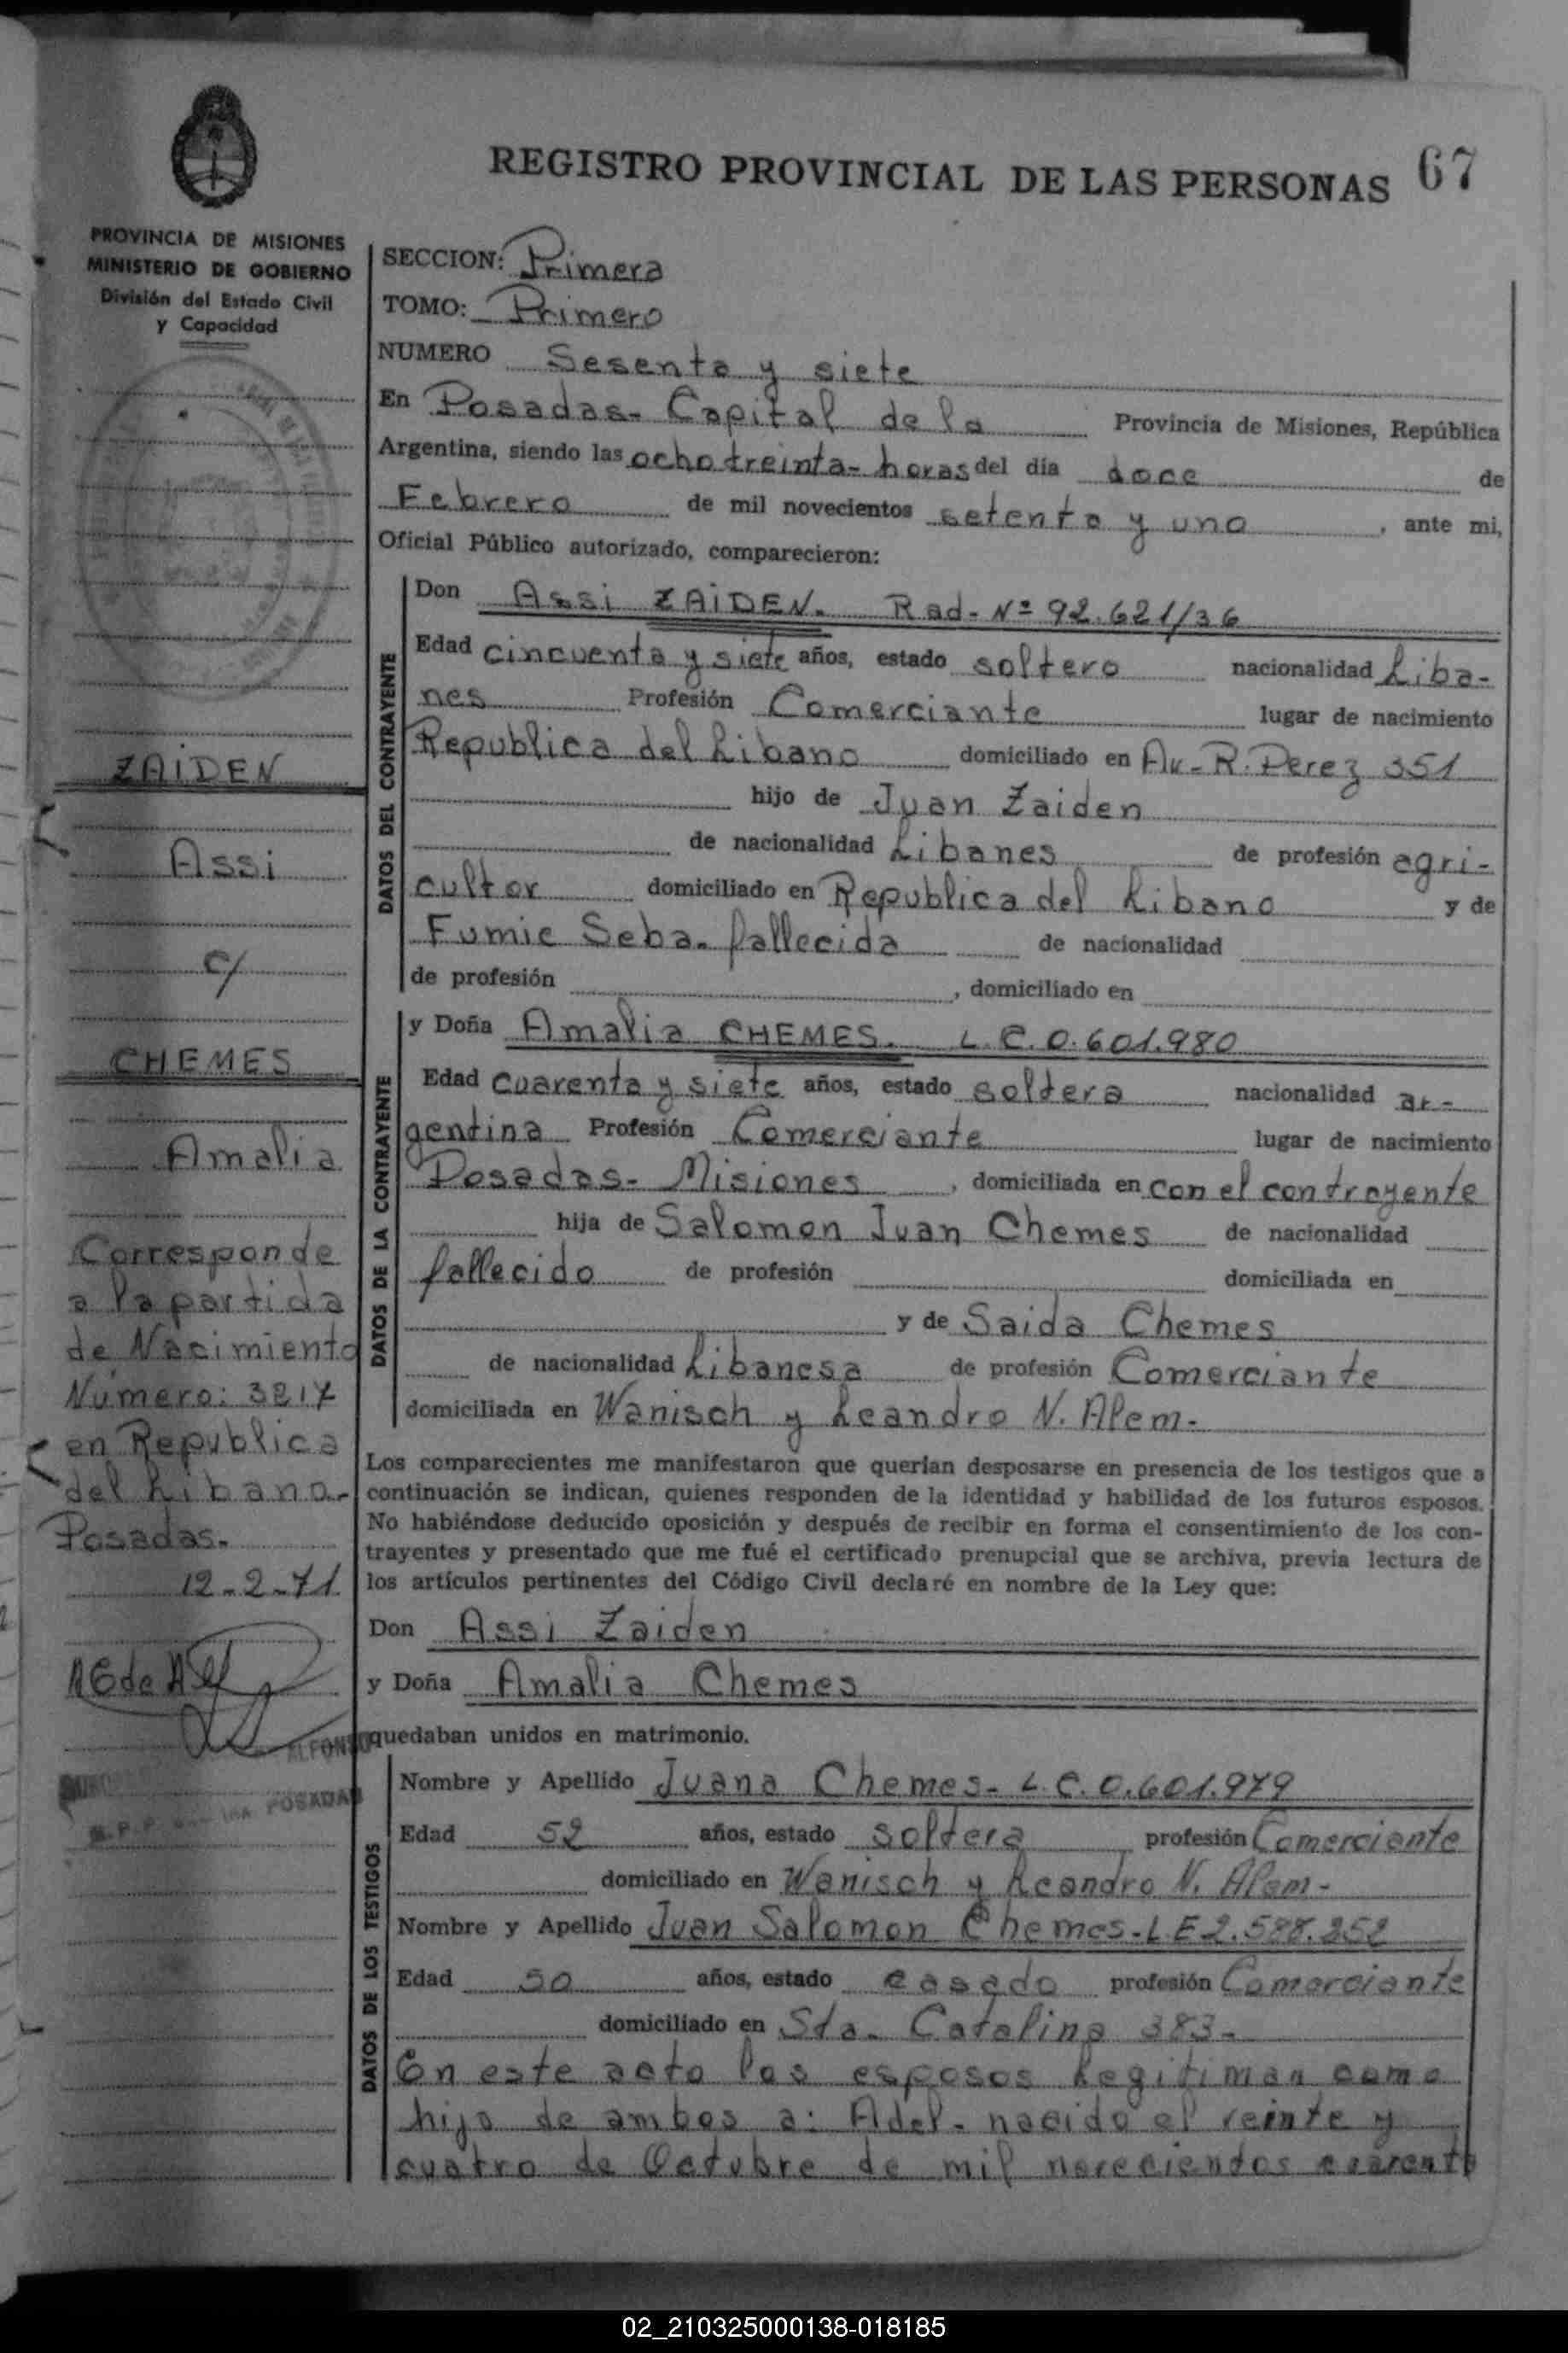 REGISTRO PROVINCIAL DE LAS PERSONAS 67
PROVINCIA DE MISIONES
MINISTERIO DE GOBIERNO
División del Estado Civil
y Capacidad
ZAIDEN
Assi
c/
CHEMES
Amalia
Corresponde
a la partida
de Nacimiento
Número: 3217
en Republica
del Libano.
Posadas.
12-2-71
ALFONSO
POSADAS
SECCION: Primera
TOMO: Primero
NUMERO Sesenta y siete
En Posadas- Capital de la Provincia de Misiones, República
Argentina, siendo las ocho treinta- horas del día doce de
Febrero de mil novecientos setenta y uno, ante mi,
Oficial Público autorizado, comparecieron:
DATOS DEL CONTRAYENTE
Don Assi ZAIDEN. Rad- Nº 92.621/36
Edad cincuenta y siete años, estado soltero nacionalidad Liba-
nes Profesión Comerciante lugar de nacimiento
Republica del Libano domiciliado en Av- R. Perez 351
hijo de Juan Zaiden
de nacionalidad Libanes de profesión agri-
cultor domiciliado en Republica del Libano y de
Fumie Seba. fallecida de nacionalidad
de profesión , domiciliado en
DATOS DE LA CONTRAYENTE
y Doña Amalia CHEMES. L.C.0.601.980
Edad cuarenta y siete años, estado soltera nacionalidad ar-
gentina Profesión Comerciante lugar de nacimiento
Posadas- Misiones, domiciliada en con el contrayente
hija de Salomon Juan Chemes de nacionalidad
fallecido de profesión domiciliada en
y de Saida Chemes
de nacionalidad Libanesa de profesión Comerciante
domiciliada en Wanisch y Leandro N. Alem-
Los comparecientes me manifestaron que querían desposarse en presencia de los testigos que a
continuación se indican, quienes responden de la identidad y habilidad de los futuros esposos.
No habiéndose deducido oposición y después de recibir en forma el consentimiento de los con-
trayentes y presentado que me fué el certificado prenupcial que se archiva, previa lectura de
los artículos pertinentes del Código Civil declaré en nombre de la Ley que:
Don Assi Zaiden
y Doña Amalia Chemes
quedaban unidos en matrimonio.
DATOS DE LOS TESTIGOS
Nombre y Apellido Juana Chemes- L.C.0.601.979
Edad 52 años, estado soltera profesión Comerciante
domiciliado en Wanisch y Leandro N. Alem-
Nombre y Apellido Juan Salomon Chemes-L.E 2.588.252
Edad 50 años, estado casado profesión Comerciante
domiciliado en Sta. Catalina 383-
En este acto los esposos Legitiman como
hijo de ambos a: Adel- nacido el veinte y
cuatro de Octubre de mil novecientos cuarenta
02_210325000138-018185